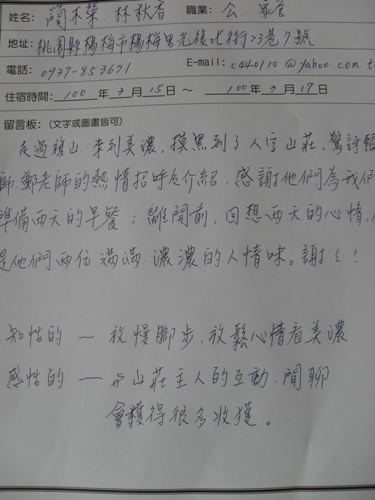 姓名: 簡木榮 林秋香 職業: 公. 家管
地址: 桃園縣楊梅市楊梅里光復北街23巷7號
電話: 0937-853671 E-mail: c440110@yahoo.com.t
住宿時間: 100 年 3 月 15 日 ~ 100 年 3 月 17 日
留言板: (文字或圖畫皆可)
走過旗山. 來到美濃, 摸黑到了人字山莊, 驚訝
師. 鄭老師的熱情招呼介紹, 感謝他們為我們
準備兩天的早餐; 離開前, 回想兩天的心情,
是他們兩位滿滿. 濃濃的人情味。謝謝!
知性的 — 放慢腳步, 放鬆心情看美濃.
感性的 — 與山莊主人的互動. 閒聊
會獲得很多收獲。